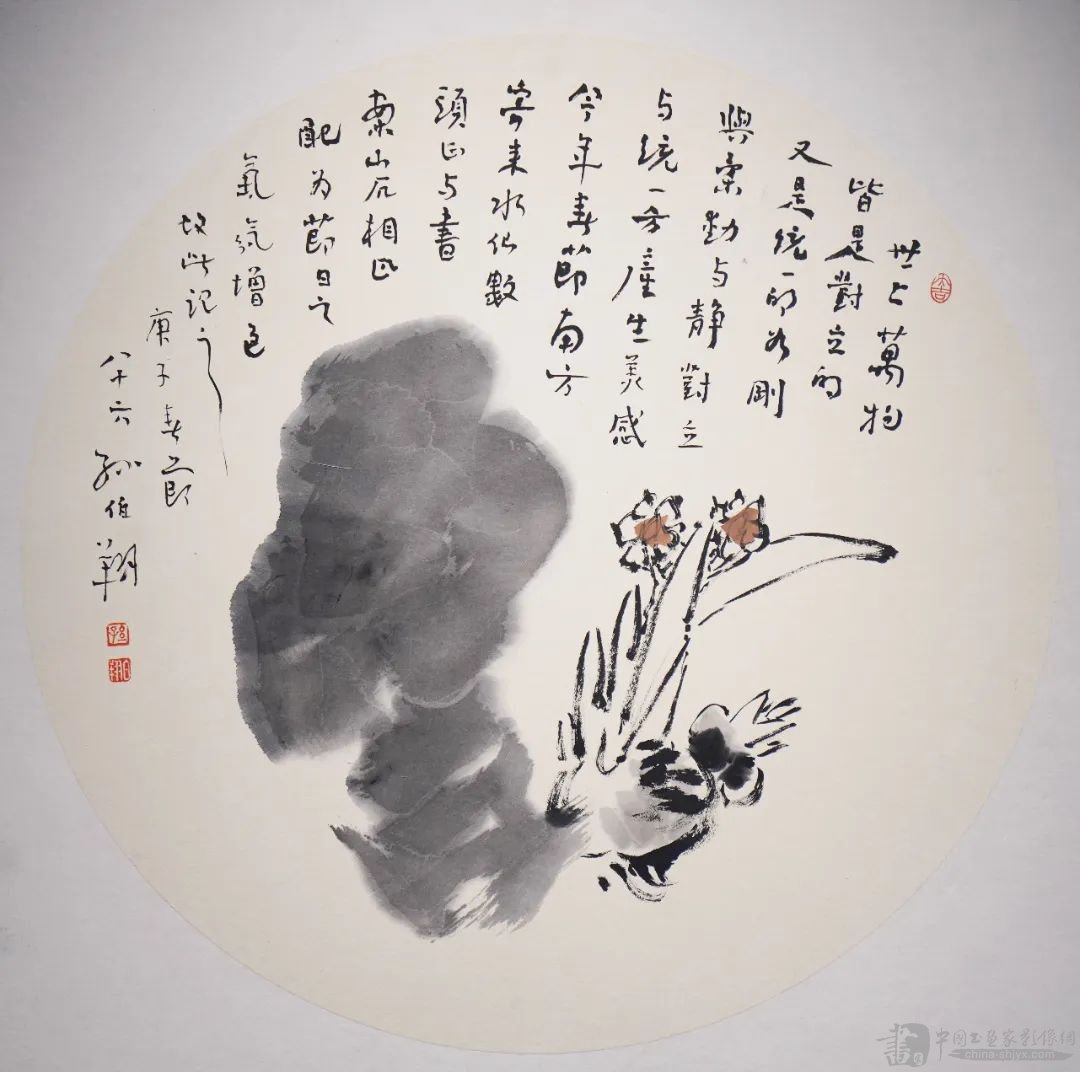 世上萬物
皆是對立的
又是統一的如剛
與柔動与静對立
与統一方產生美感
今年春節南方
寄来水仙數
頭正与書
案山石相匹
配为節日之
氣氛增色
故此記之
庚子春節
八十六孙伯翔
中國書畫家影像網
china-shjyx.com